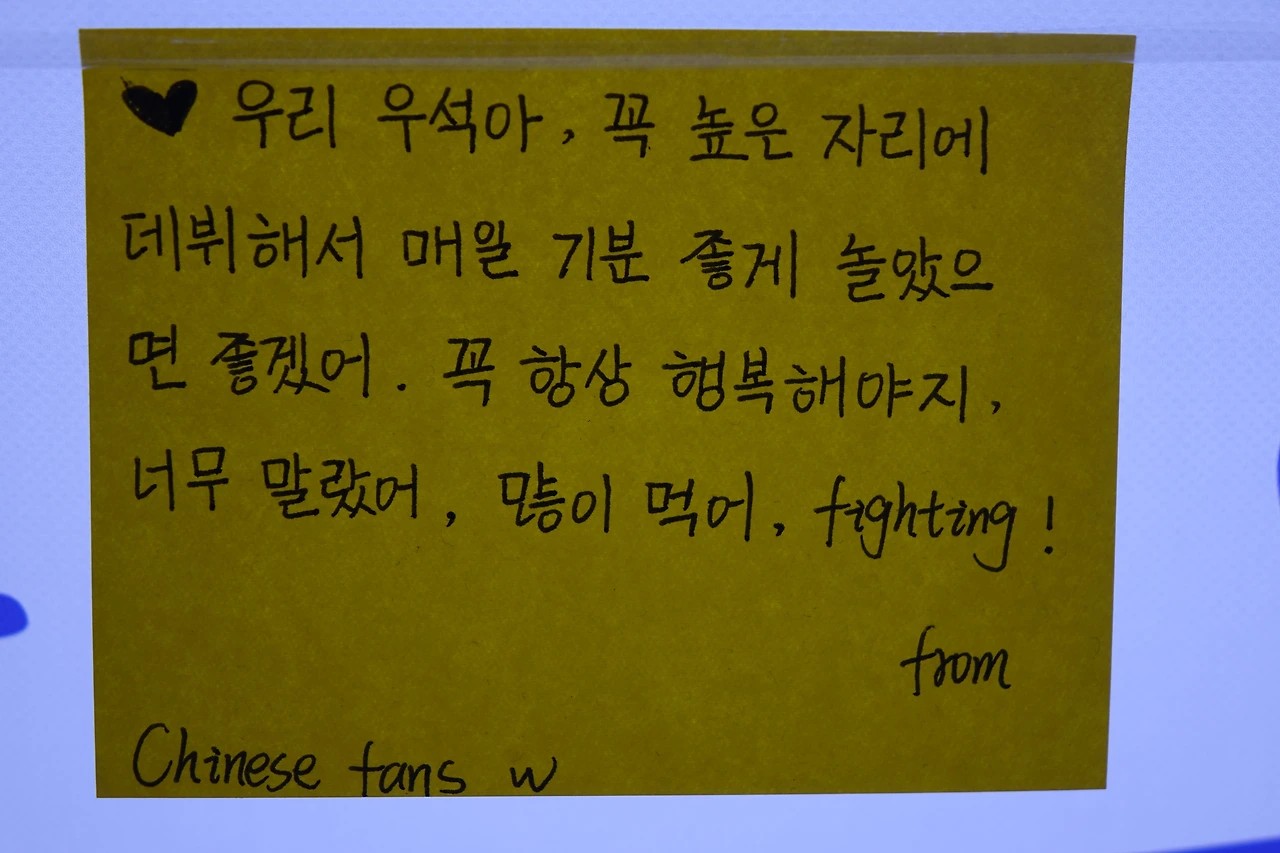 ♥ 우리 우석아, 꼭 높은 자리에
데뷔해서 매일 기분 좋게 놀았으
면 좋겠어. 꼭 항상 행복해야지,
너무 말랐어, 많이 먹어, fighting!
from
Chinese fans w